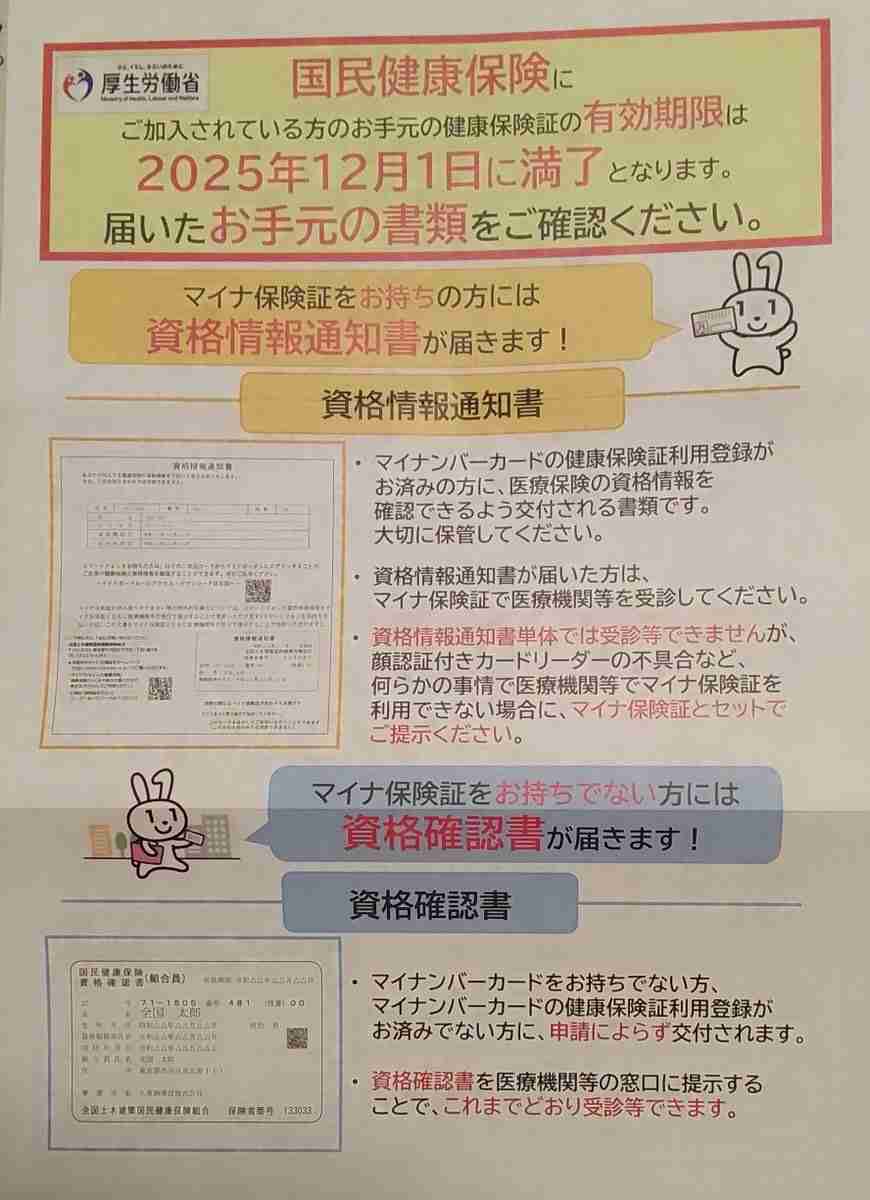 ひと、くらし、みらいのために
厚生労働省
Ministry of Health, Labour and Welfare
国民健康保険に
ご加入されている方のお手元の健康保険証の有効期限は
2025年12月1日に満了となります。
届いたお手元の書類をご確認ください。
マイナ保険証をお持ちの方には
資格情報通知書が届きます！
資格情報通知書
資格情報通知書
・マイナンバーカードの健康保険証利用登録が
お済みの方に、医療保険の資格情報を
確認できるよう交付される書類です。
大切に保管してください。
・資格情報通知書が届いた方は、
マイナ保険証で医療機関等を受診してください。
・資格情報通知書単体では受診等できませんが、
顔認証付きカードリーダーの不具合など、
何らかの事情で医療機関等でマイナ保険証を
利用できない場合に、マイナ保険証とセットで
ご提示ください。
資格情報通知書
マイナ保険証をお持ちでない方には
資格確認書が届きます！
資格確認書
国民健康保険
資格確認書
(組合員)
71-1505 番号 481 (枝番) 00
全国 太郎
全国土木建築国民健康保険組合 保険者番号 133033
・マイナンバーカードをお持ちでない方、
マイナンバーカードの健康保険証利用登録が
お済みでない方に、申請によらず交付されます。
・資格確認書を医療機関等の窓口に提示する
ことで、これまでどおり受診等できます。